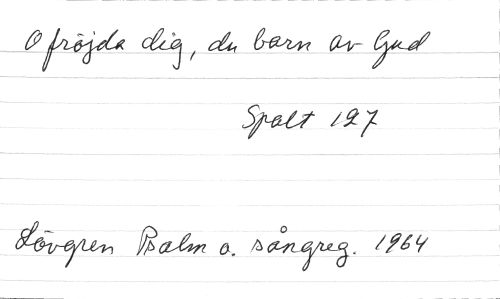 O fröjda dig, du barn av Gud
Spalt 127
Lövgren Psalm o. sångreg. 1964